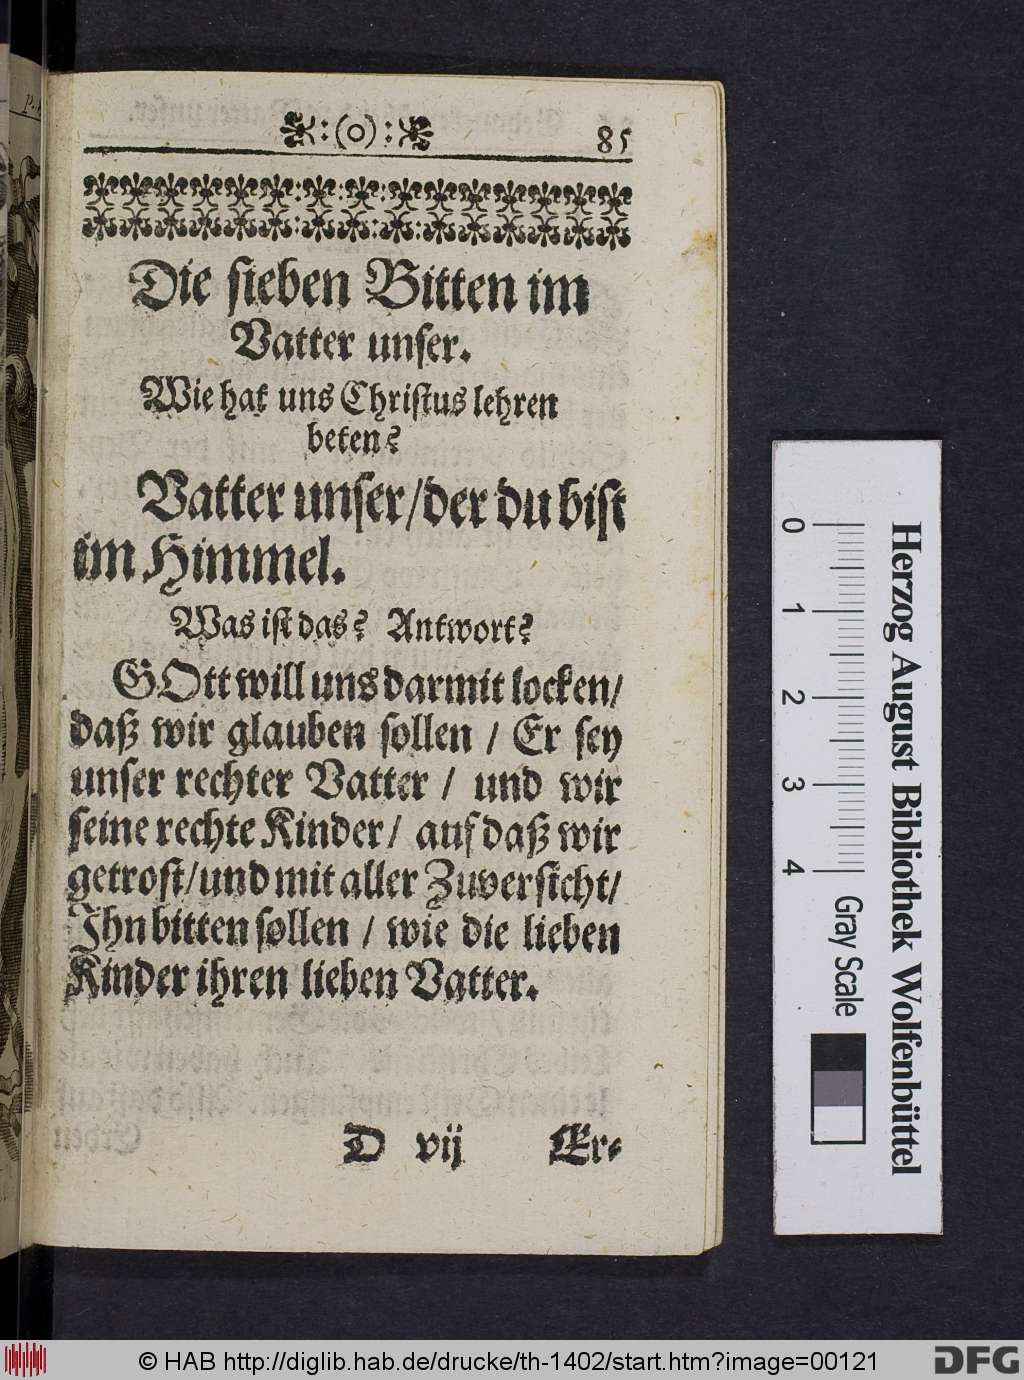 :(o):
85
Die sieben Bitten im
Vatter unser.
Wie hat uns Christus lehren
beten?
Vatter unser/der du bist
im Himmel.
Was ist das? Antwort?
GOtt will uns darmit locken/
daß wir glauben sollen / Er sey
unser rechter Vatter / und wir
seine rechte Kinder/ auf daß wir
getrost/und mit aller Zuversicht/
Ihn bitten sollen / wie die lieben
Kinder ihren lieben Vatter.
D vij
Er-
0
1
2
3
4
Gray Scale
Herzog August Bibliothek Wolfenbüttel
© HAB http://diglib.hab.de/drucke/th-1402/start.htm?image=00121
DFG